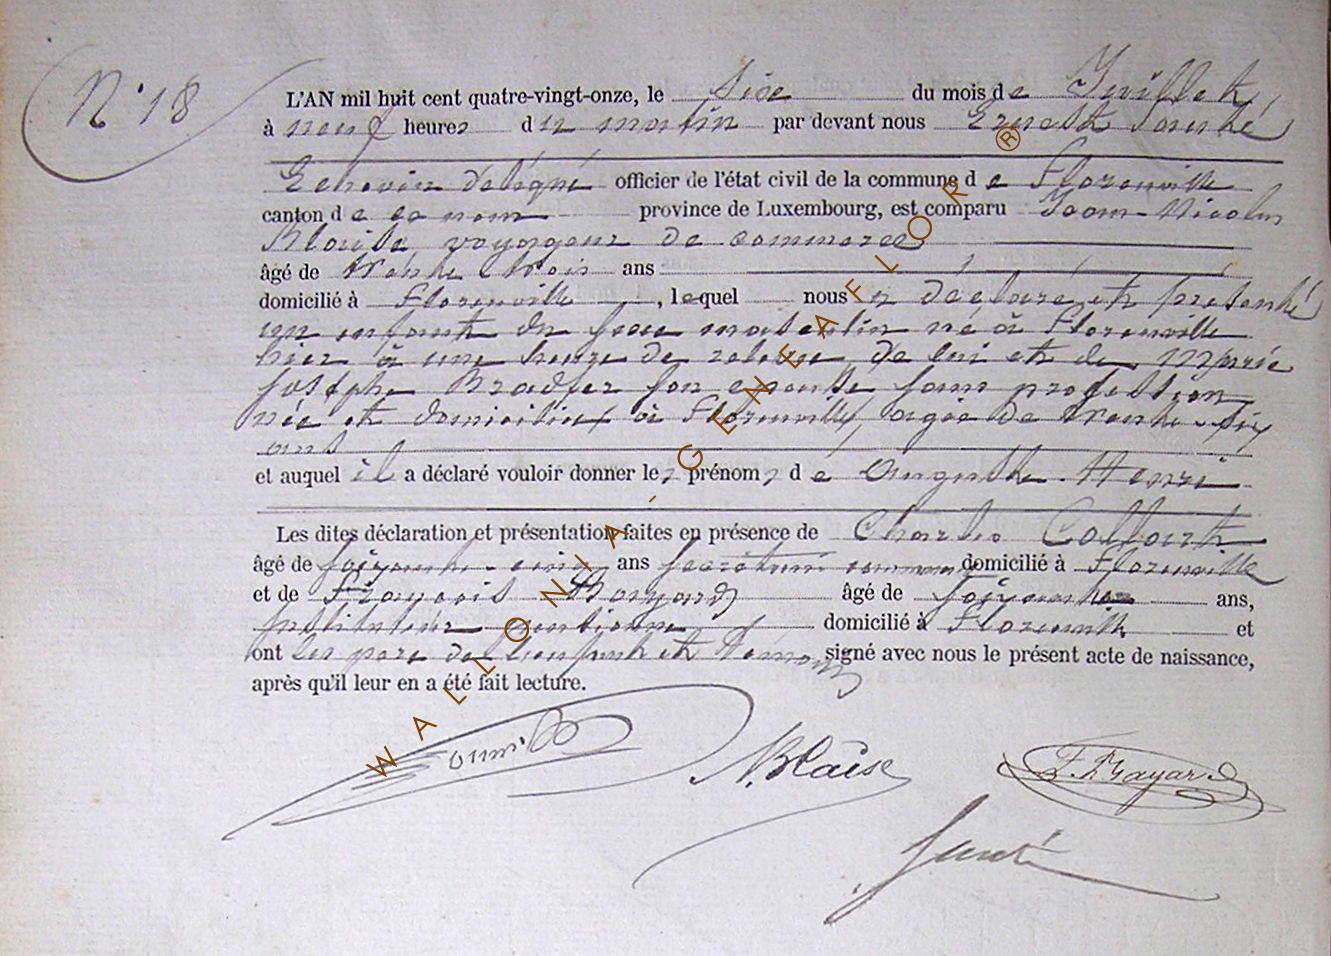 N° 18
L'AN mil huit cent quatre-vingt-onze, le six du mois de Juillet
à neuf heures du matin par devant nous Ernest
Echevin délégué officier de l'état civil de la commune de Florenville
canton de ce nom province de Luxembourg, est comparu Jean-Nicolas
Blaise voyageur de commerce
âgé de trente trois ans
domicilié à Florenville, lequel nous a déclaré et présenté
un enfant du sexe masculin né à Florenville
hier à une heure de relevée de lui et de Marie
Josèphe Bradfer son épouse sans profession
née et domiciliée à Florenville, âgée de trente-six
ans
et auquel il a déclaré vouloir donner les prénoms de Auguste Henri
Les dites déclaration et présentation faites en présence de Charles
âgé de soixante-cinq ans secrétaire communal domicilié à Florenville
et de François Bayard âgé de soixante ans,
instituteur pensionné domicilié à Florenville et
ont les père de l'enfant et témoins signé avec nous le présent acte de naissance,
après qu'il leur en a été fait lecture.
N. Blaise
F. Bayard
WALLONIA-GENEAFLOR ®